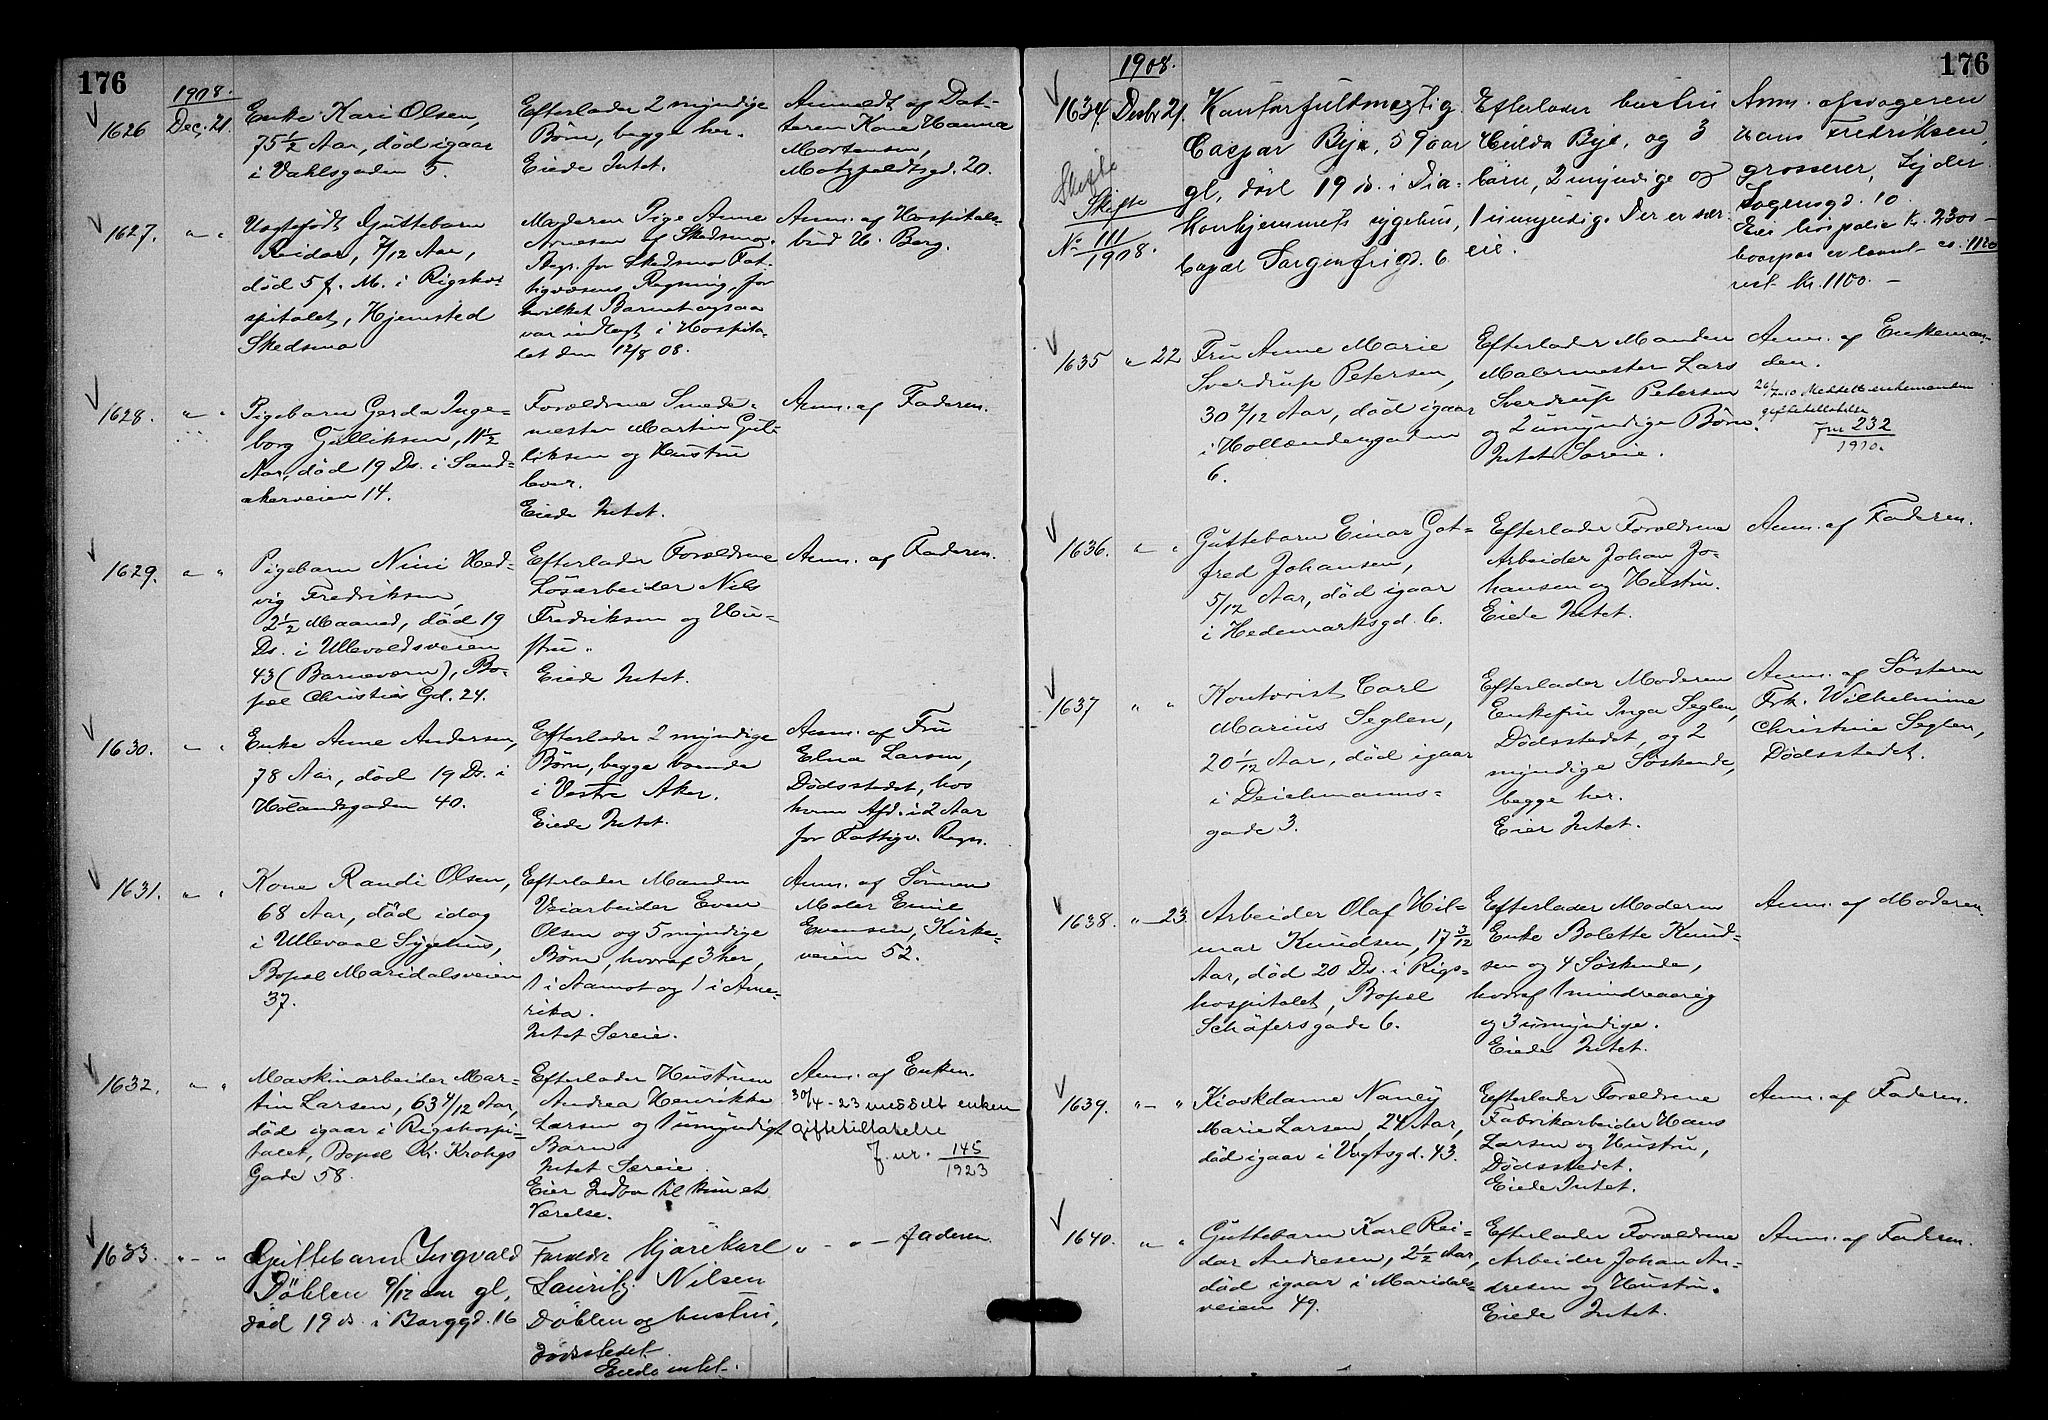 176
1908.
1626
Dec. 21.
Enke Kari Olsen,
75 1/2 Aar, död igaar
i Vahlsgaden 5.
Efterlader 2 myndige
Børn, begge her.
Eiede Intet.
Anmeldt af Dat-
teren Kone Hanna
Mortensen,
Motzfeldtsgd. 20.
1627.
" - "
Uægtefödt Guttebarn
Reidar, 7/12 Aar,
död 5 f. M. i Rigsho-
spitalet, Hjemsted
Skedsmo
Moderen Pige Anne
Arnesen af Skedsmo.
Begr. for Skedsmo Fat-
tigvæsens Regning, for
hvilket Barnet ogsaa
var indlagt i Hospita-
let den 12/8 08.
Anm. af Hospitals-
bud H. Berg.
1628.
" - "
Pigebarn Gerda Inge-
borg Gulliksen, 11 1/2
Aar, död 19 Ds. i Sand-
akerveien 14.
Forældrene Smede-
mester Martin Gul-
liksen og Hustru
lever.
Eiede Intet.
Anm. af Faderen.
1629.
" "
Pigebarn Nini Hed-
vig Fredriksen,
2 1/2 Maaned, död 19
Ds. i Ullevoldsveien
43 (Barneværn), Bo-
pæl Christies Gd. 24.
Efterlader Forældrene
Løsarbeider Nils
Fredriksen og Hu-
stru.
Eiede Intet.
Anm. af Faderen.
1630.
" - "
Enke Anne Andersen,
78 Aar, död 19 Ds. i
Hølandsgaden 40.
Efterlader 2 myndige
Børn, begge boende
i Vestre Aker.
Eiede Intet.
Anm. af Fru
Elna Larsen,
Dødsstedet, hos
hvem Afd. i 2 Aar
for Fattigv. Regn.
1631.
" - "
Kone Randi Olsen,
68 Aar, död idag
i Ullevaal Sygehus,
Bopæl Maridalsveien
37.
Efterlader Manden
Veiarbeider Even
Olsen og 5 myndige
Børn, hvoraf 3 her,
1 i Aamot og 1 i Ame-
rika.
Intet Særeie.
Anm. af Sönnen
Maler Emil
Evensen, Kirke-
veien 52.
1632.
" - "
Maskinarbeider Mar-
tin Larsen, 63 4/12 Aar,
död igaar i Rigshospi-
talet, Bopæl Kr. Krohgs
Gade 58.
Efterlader Hustruen
Andrea Henrikke
Larsen og 1 umyndigt
Barn
Intet Særeie.
Eier Indbo til kun et
Værelse.
Anm. af Enken.
30/4 - 23 meddelt enken
giftetilladelse
J. nr. 145/1923
1633.
" - "
Guttebarn Ingvald
Döhlen 9/12 aar gl,
död 19 ds. i Borggd. 16
Forældre Kjörekarl
Lauritz Nilsen
Döhlen og hustru,
dödsstedet.
Eiede intet.
" - " - faderen
176
1908.
1634.
Desbr 21.
Skifte
Skifte
No 111/1908.
Kontorfuldmægtig
Caspar Bye, 59 aar
gl, död 19 ds. i Dia-
konhjemmets sygehus,
bopæl Sorgenfrigd. 6.
Efterlader hustru
Hulda Bye, og 3
børn, 2 myndige og
1 umyndig. Der er sær-
eie.
Anm. af svogeren
Hans Fredriksen,
grosserer, Lyder
Sagensgd. 10.
Eier livspolice kr. 2300 -
hvorpaa er laant ca. 1120
rest kr. 1100. -
1635
" 22
Fru Anne Marie
Sverdrup Petersen,
30 2/12 Aar, död igaar
i Hollændergaden
6.
Efterlader Manden
Malermester Lars
Sverdrup Petersen
og 2 umyndige Børn.
Intet Særeie.
Anm. af Enkeman-
den.
Meddelt enkemanden
giftetilladelse
232/1910.
1636.
" "
Guttebarn Einar Got-
fred Johansen,
5/12 Aar, död igaar
i Hedemarksgd. 6.
Efterlader Forældrene
Arbeider Johan Jo-
hansen og Hustru.
Eiede Intet.
Anm. af Faderen.
1637
" "
Kontorist Carl
Marius Seglen,
20 1/12 Aar, död igaar
i Deichmanns-
gade 3.
Efterlader Moderen
Enkefru Inga Seglen,
Dødsstedet, og 2
myndige Søskende,
begge her.
Eier Intet.
Anm. af Søsteren
Frk. Wilhelmine
Christine Seglen,
Dødsstedet.
1638.
" - 23.
Arbeider Olaf Hil-
mar Knudsen, 17 3/12
Aar, död 20 Ds. i Rigs-
hospitalet, Bopæl
Schäfersgade 6.
Efterlader Moderen
Enke Bolette Knud-
sen og 4 Søskende,
hvoraf 1 mindreaarig
og 3 umyndige.
Eiede Intet.
Anm. af Moderen.
1639.
" - "
Kioskdame Nancy
Marie Larsen, 24 Aar,
död igaar i Vogtsgd. 43.
Efterlader Forældrene
Fabrikarbeider Hans
Larsen og Hustru,
Dødsstedet.
Eiede Intet.
Anm. af Faderen.
1640.
" - "
Guttebarn Karl Rei-
dar Andresen, 2 1/2 Aar,
död igaar i Maridals-
veien 49.
Efterlader Forældrene
Arbeider Johan An-
dresen og Hustru.
Eiede Intet.
Anm. af Faderen.